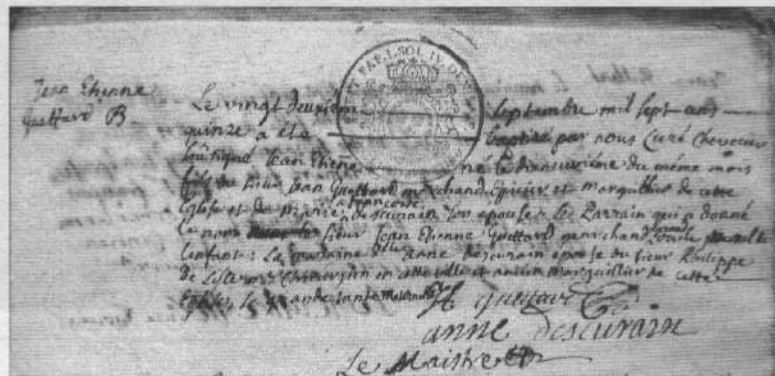 Jean Etienne
Guettard B.
Le vingt deuxiem septembre mil sept cens
quinze a été baptisé par nous Curé
soussigné Jean Etiene né le dixneuvième du même mois
fils du sieur Jean Guettard marchand Epicier et marguillier de cette
Eglise et de marie françoise descurain son epouse le Parrain qui a donné
le nom sieur Jean Etienne Guettard marchand
l'enfant: La maraine anne descurain epouse du sieur Philippe
de Chirurgien en cette ville et ancien marguillier de cette
Eglise
guettard
anne descurain
Le Maistre